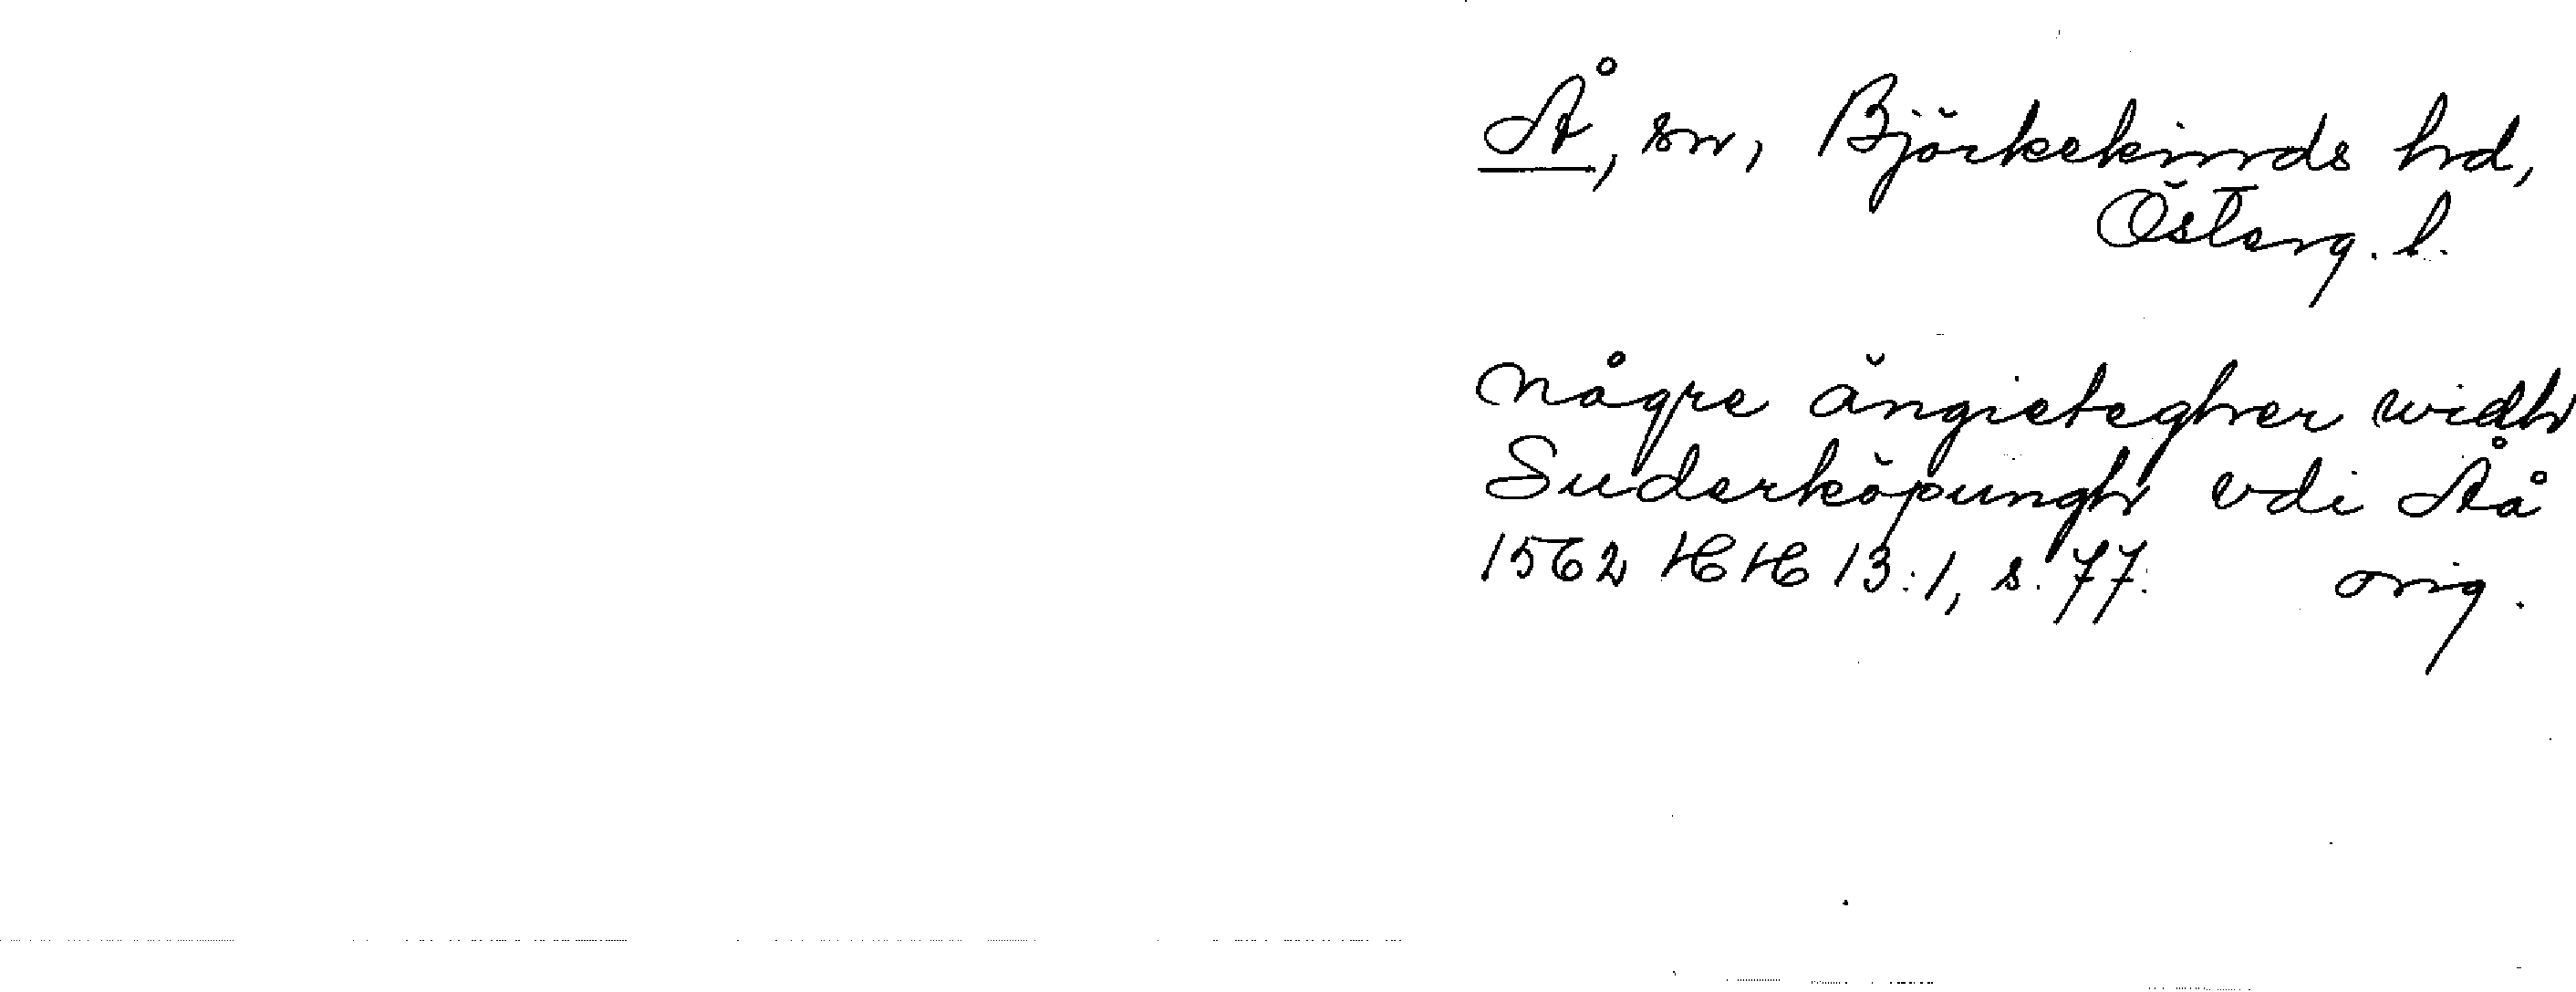 Å, sn, Björkekinds hd,
Österg. l.
några ängietegher widh
Suderköpungh vdi Åå
1562 HH 13:1, s. 77. orig.